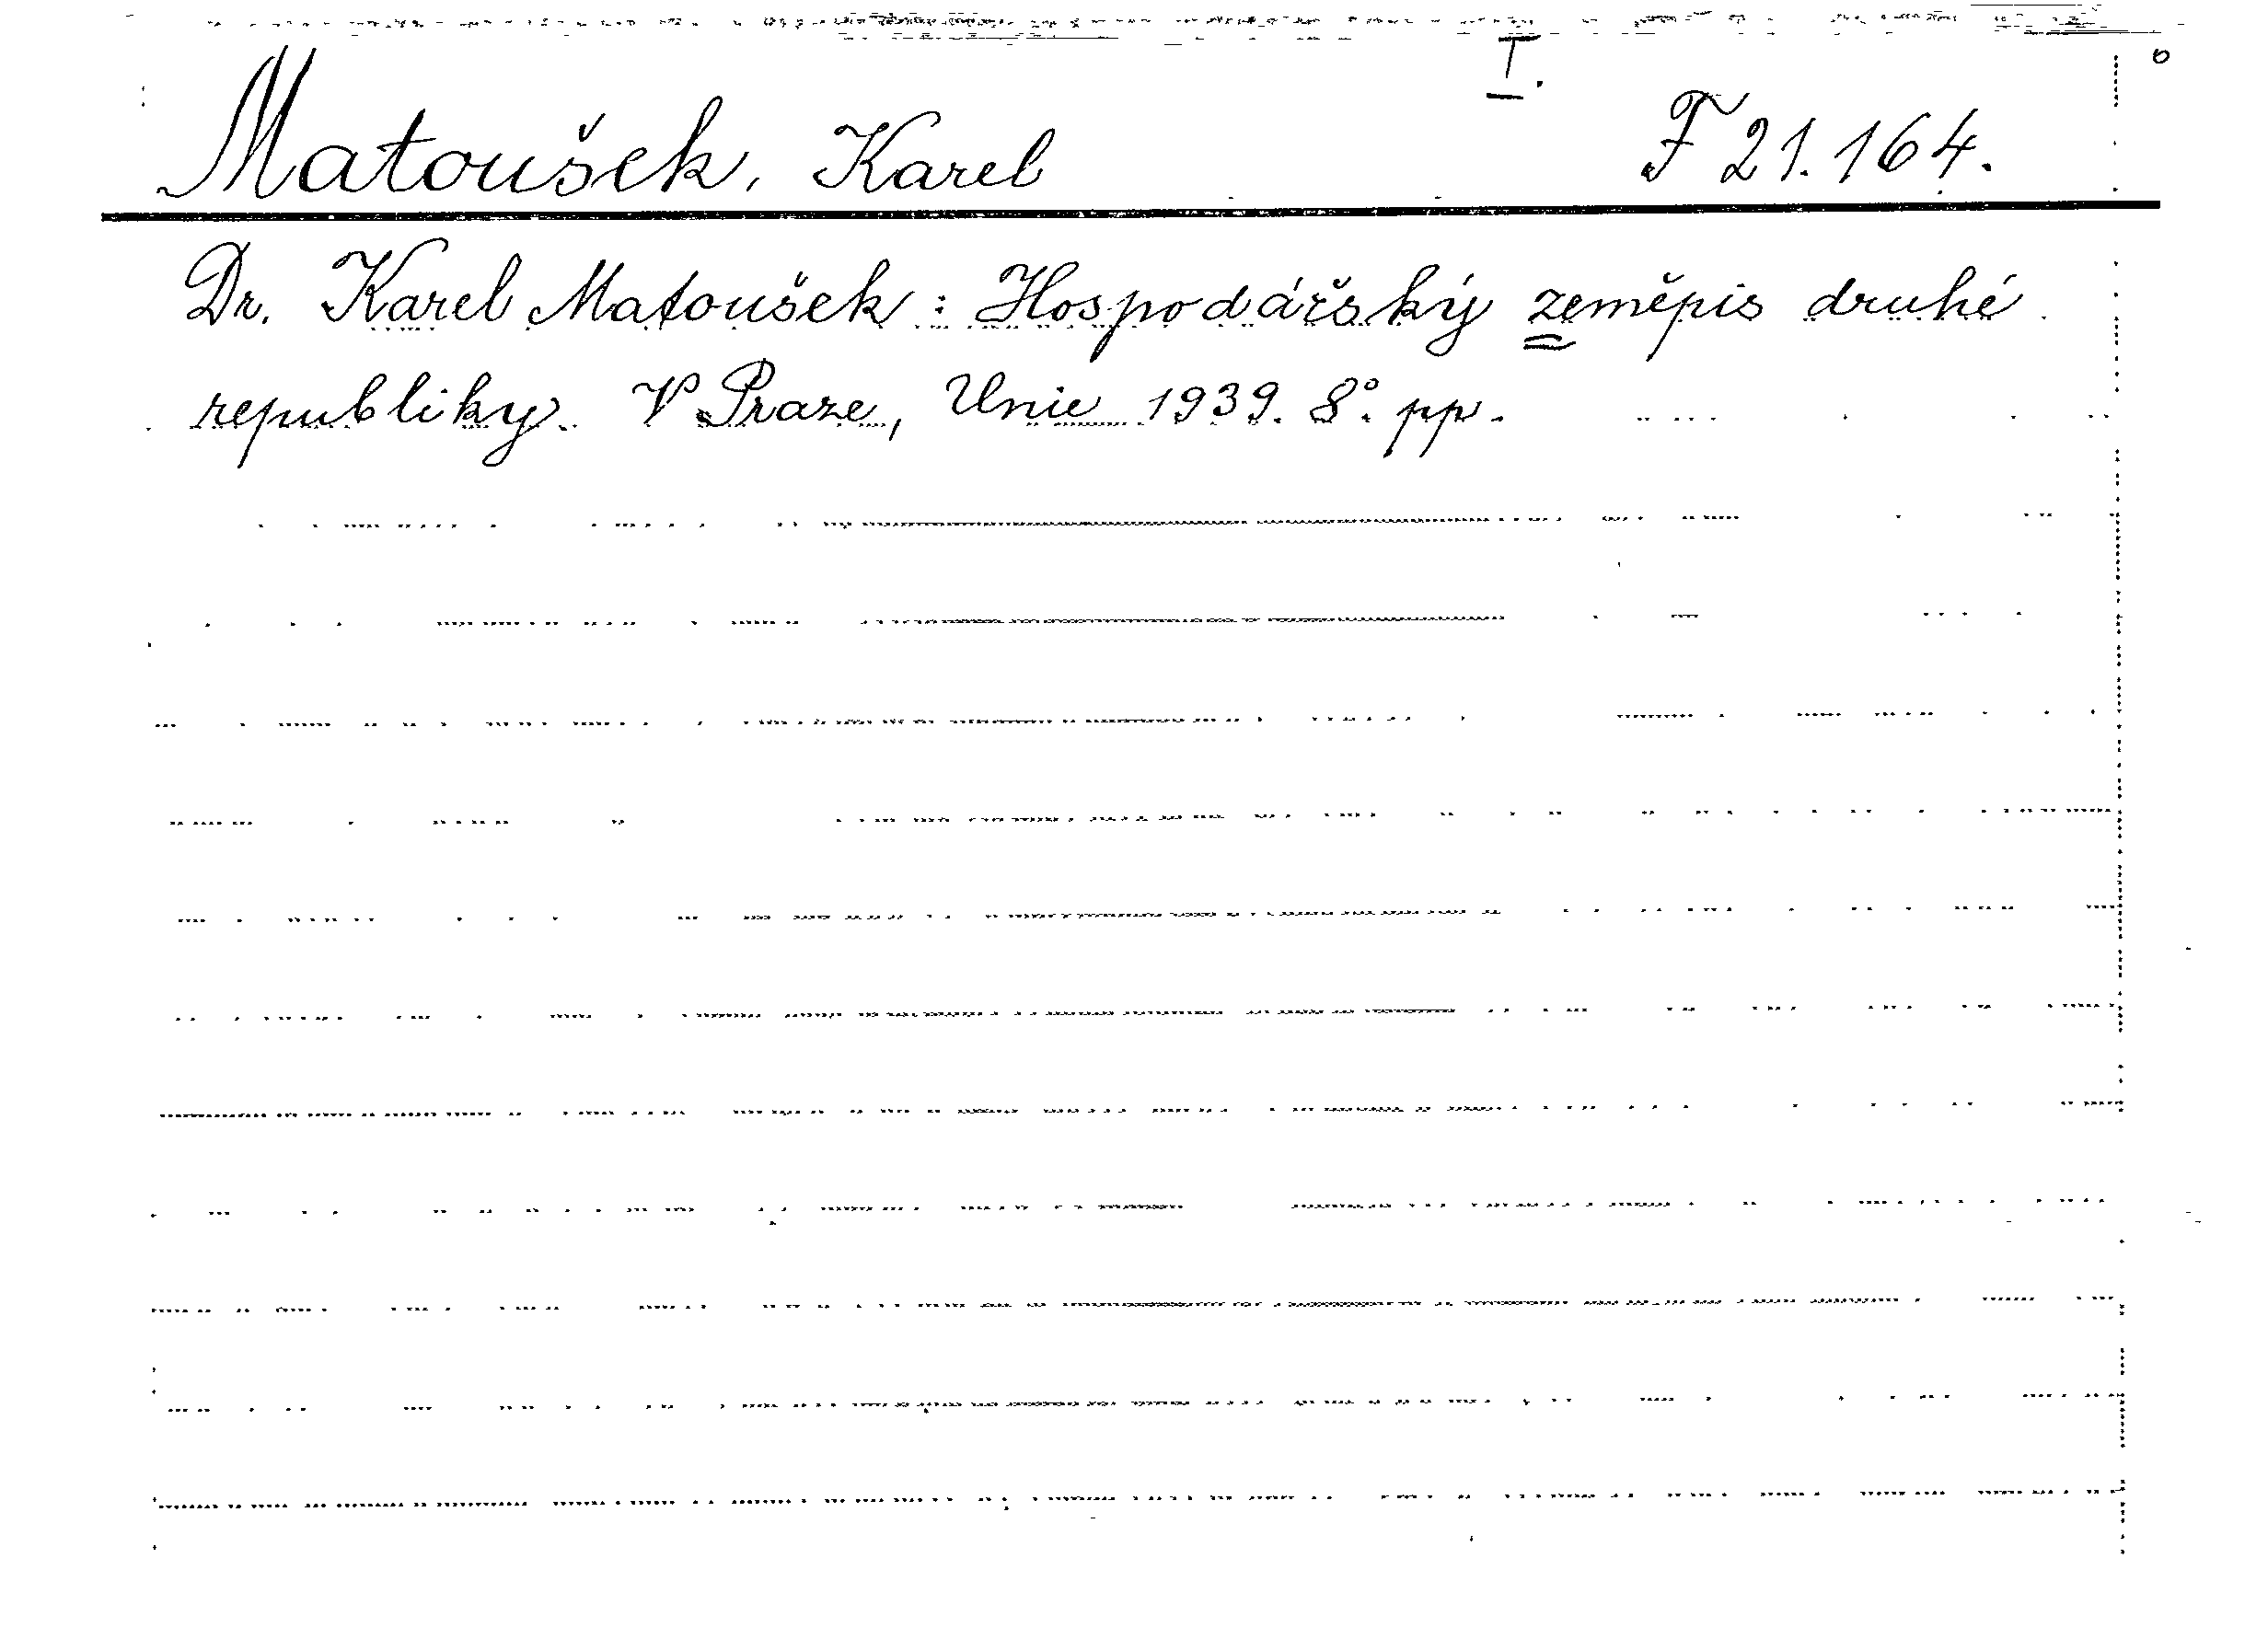 I.
Matoušek, Karel F 21.164.
Dr. Karel Matoušek: Hospodářský zeměpis druhé
republiky. V Praze, Unie 1939. 8°. pp.